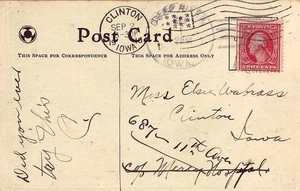 CLINTON
SEP 2
IOWA
IOWA.
Post Card
THIS SPACE FOR CORRESPONDENCE
THIS SPACE FOR ADDRESS ONLY
TWO CENTS
Did you ever
try this
Miss Elsie
Clinton
Iowa
687 11th Ave
c/o Mercy Hospital